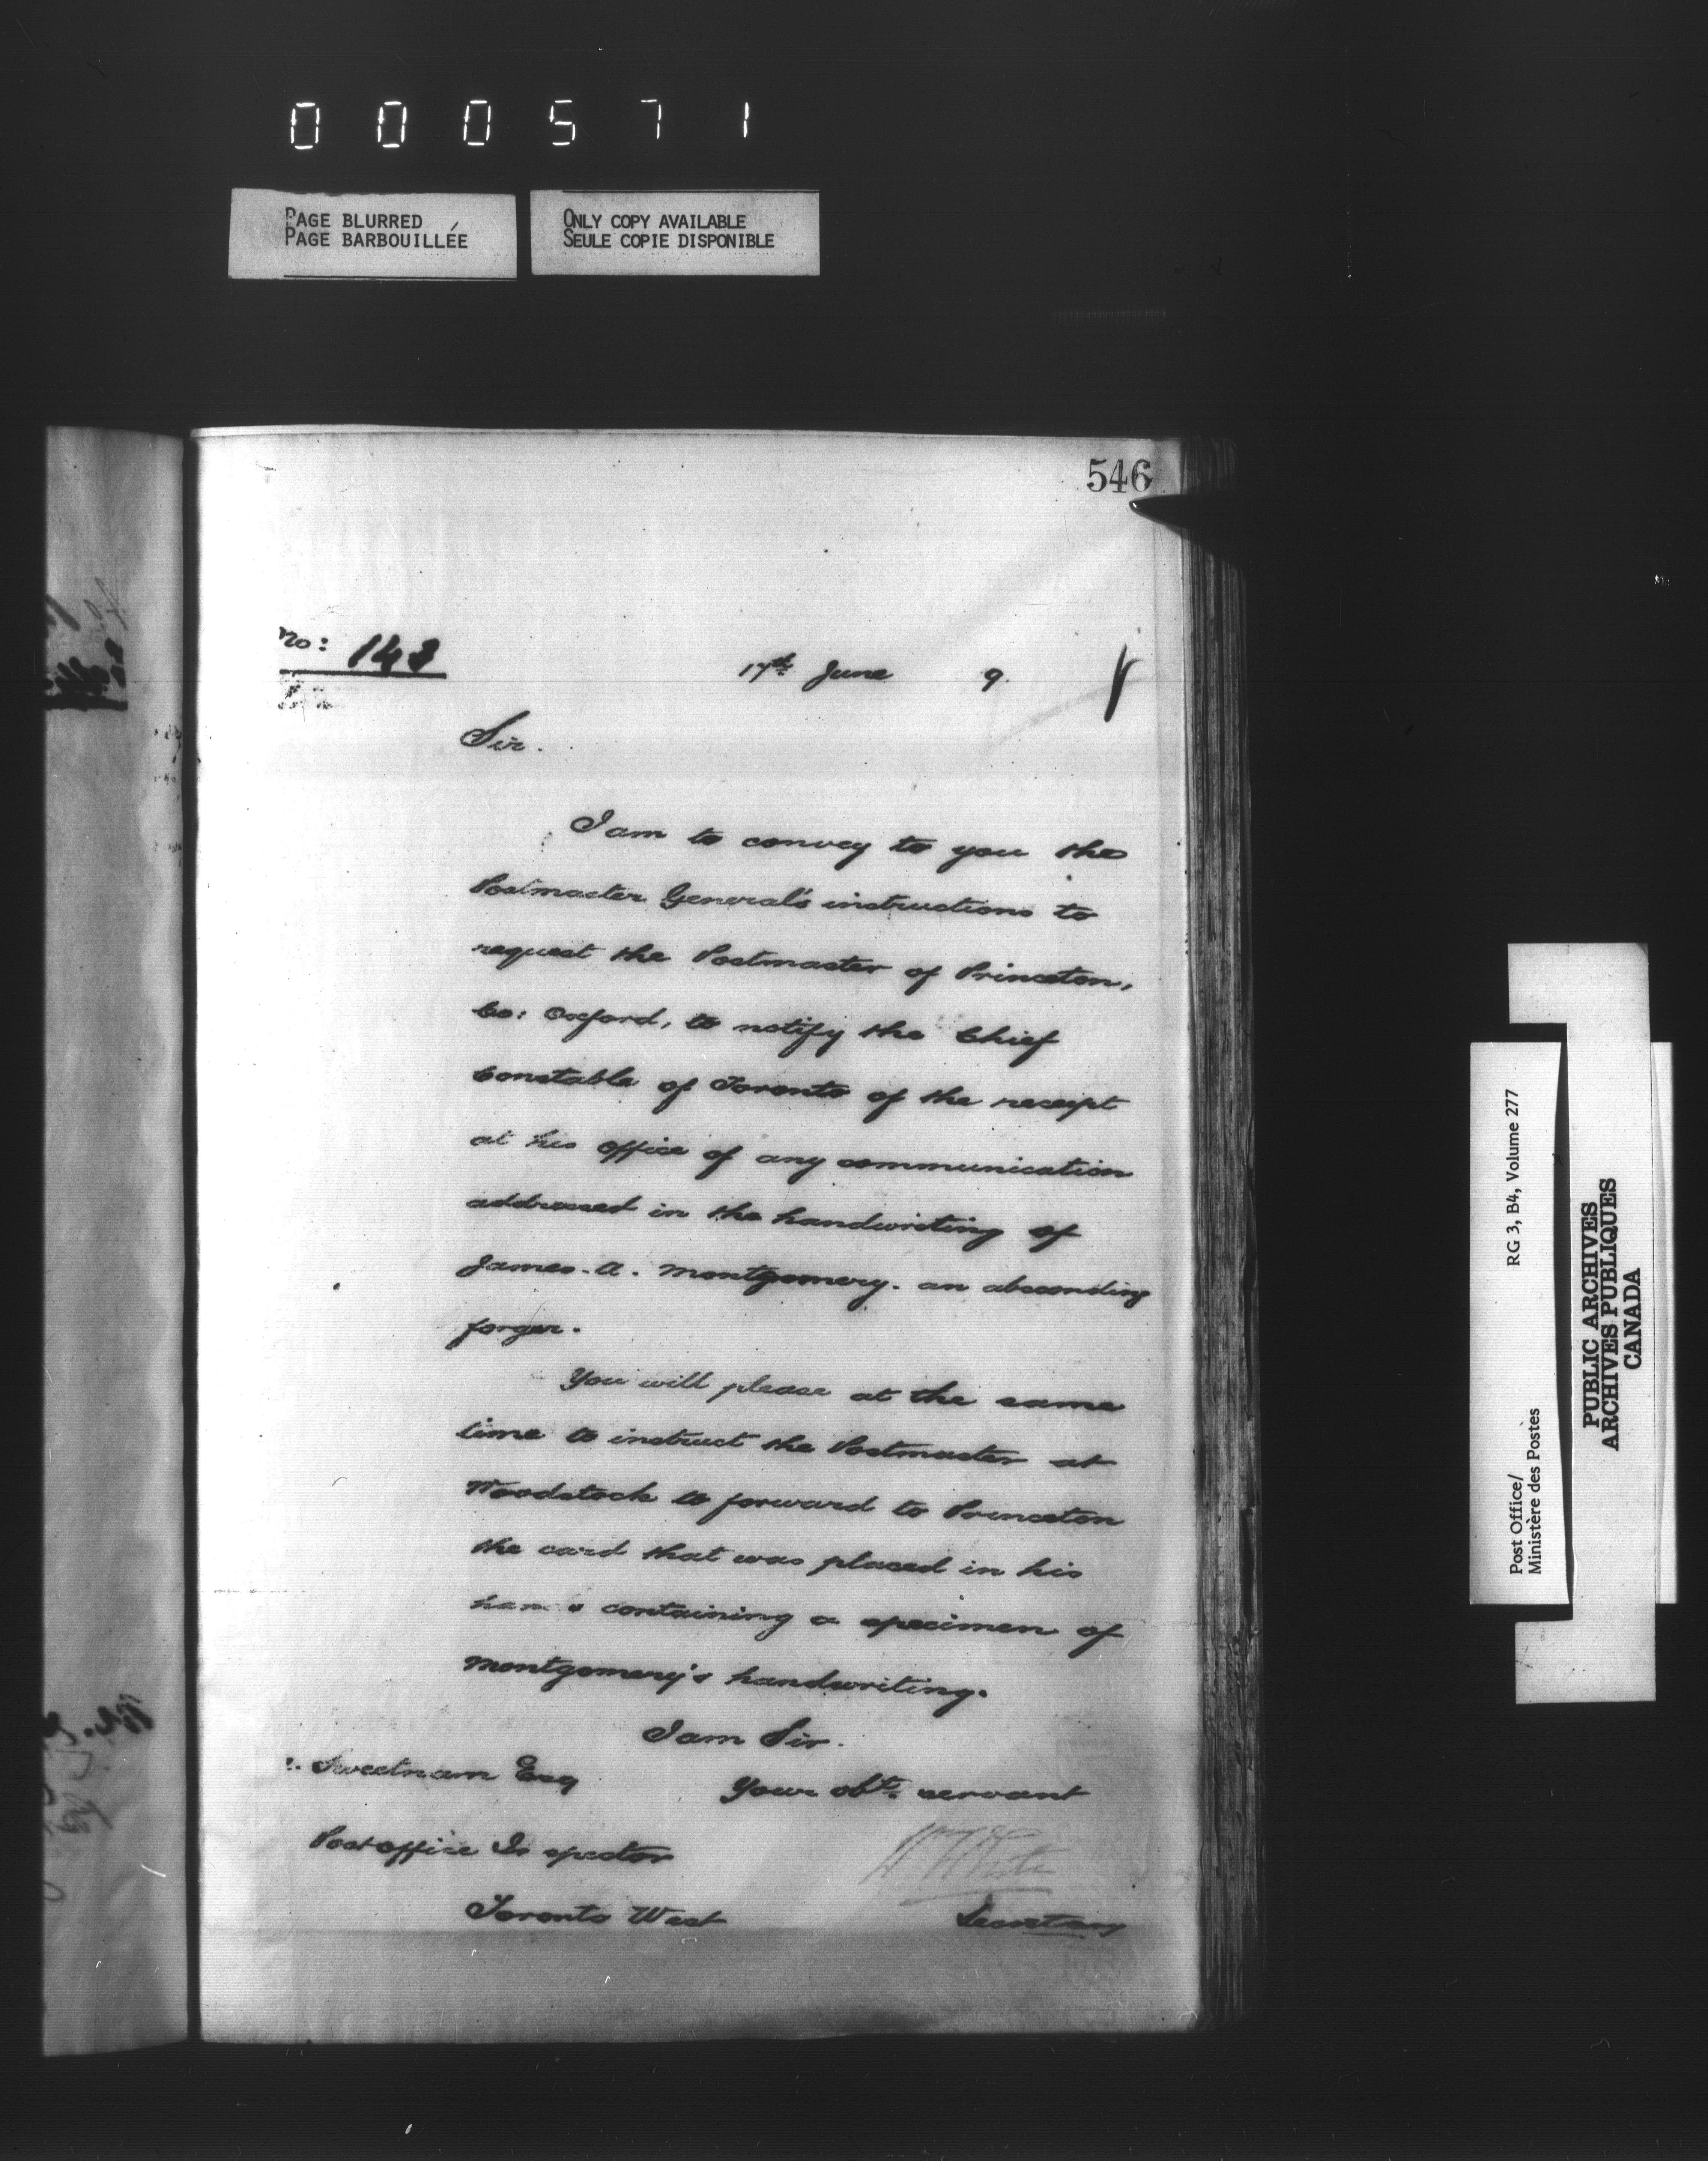 000571
PAGE BLURRED
PAGE BARBOUILLÉE
ONLY COPY AVAILABLE
SEULE COPIE DISPONIBLE
546
No: 143
17th June 9
Sir.
I am to convey to you the
Postmaster General's instructions to
request the Postmaster of Princeton,
Co: Oxford, to notify the Chief
Constable of Toronto of the receipt
at his office of any communication
addressed in the handwriting of
James. A. Montgomery. an absconding
forger.
You will please at the same
time to instruct the Postmaster at
Woodstock to forward to Princeton
the card that was placed in his
hands containing a specimen of
Montgomery's handwriting.
I am Sir.
Sweetnam Esq
Your obt. servant
Post office Inspector
Toronto West
Secretary
Post Office/
Ministère des Postes
RG 3, B4, Volume 277
PUBLIC ARCHIVES
ARCHIVES PUBLIQUES
CANADA